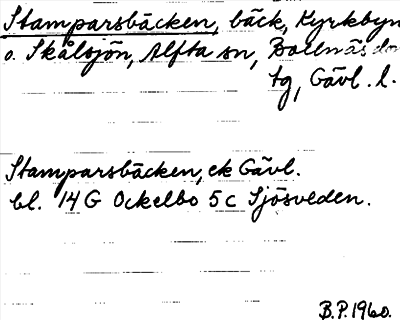 Stamparsbäcken, bäck, Kyrkbyn
o. Skålsjön, Alfta sn, Bollnäs dom
tg, Gävl. l.
Stamparsbäcken, ek Gävl.
bl. 14 G Ockelbo 5c Sjösveden.
B.P. 1960.